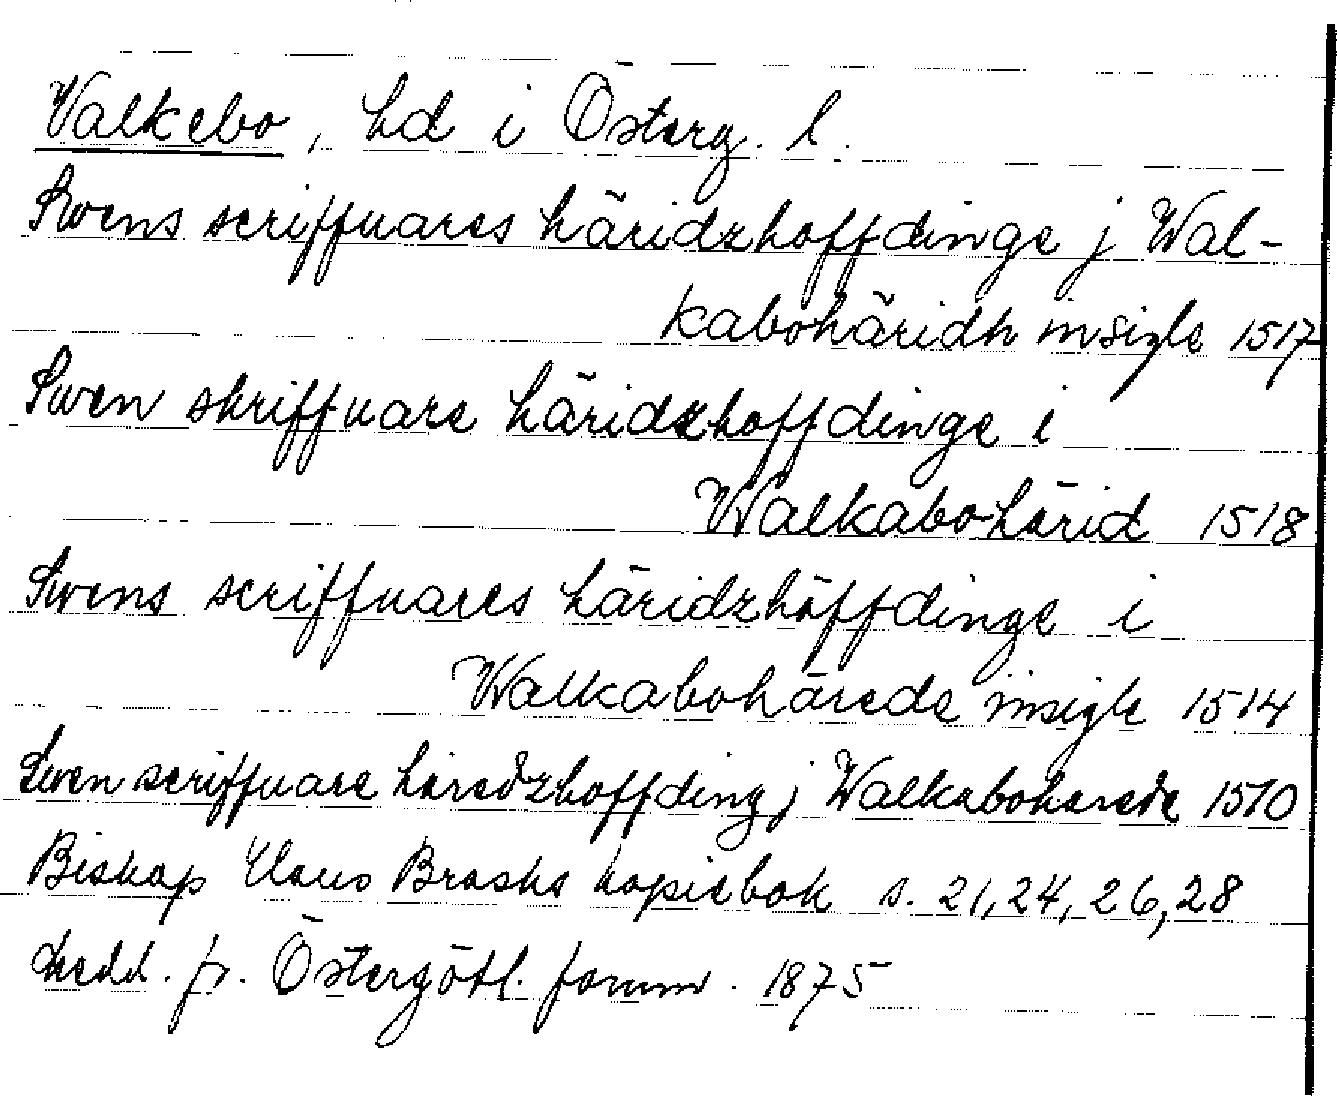 Valkebo, hd i Österg. l.
Swens scriffuares häridzhoffdinge j Wal-
kabohäridh insigle 1517
Swen skriffuare häridzhoffdinge i
Walkabohärid 1518
Swens scriffuares häridzhöffdinge i
Walkabohärede insigle 1514
Swen scriffuare häredzhoffding j Walkaboharede 1510
Biskop Hans Brasks kopiebok s. 21, 24, 26, 28
Medd. fr. Östergötl. fornm. 1875